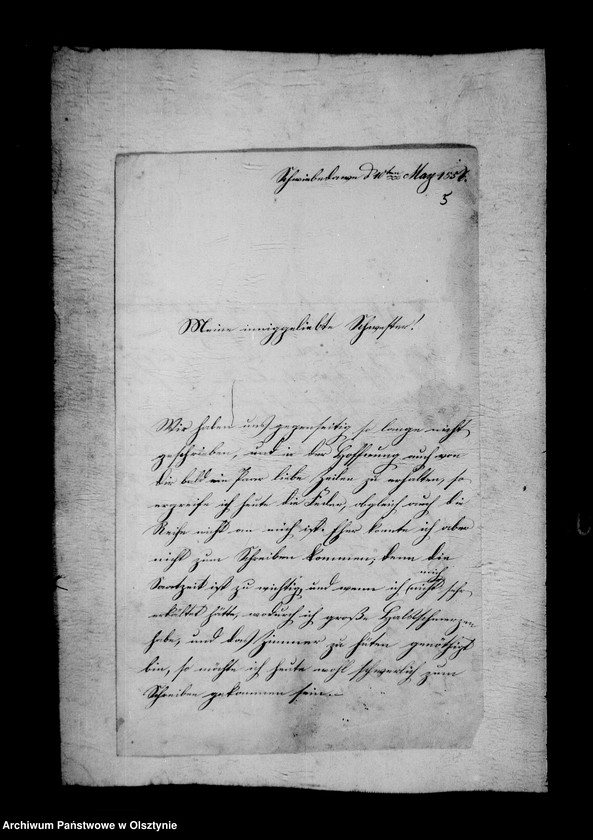 d 10ten May 185
5
Meine inniggeliebte Schwester!
Wir haben uns gegenseitig so lange nicht
geschrieben, und in der Hoffnung auch von
Dir bald ein Paar liebe Zeilen zu erhalten, so
ergreife ich heute die Feder, obgleich auch die
Reihe nicht an mich ist. Eher konnte ich aber
nicht zum Schreiben kommen, denn die
Saatzeit ist zu wichtig, und wenn ich mich nicht sehr
erkältet hätte, wodurch ich große Halsschmerzen
habe, und das Zimmer zu hüten genöthigt
bin, so möchte ich heute wohl schwerlich zum
Schreiben gekommen sein.
Archiwum Państwowe w Olsztynie